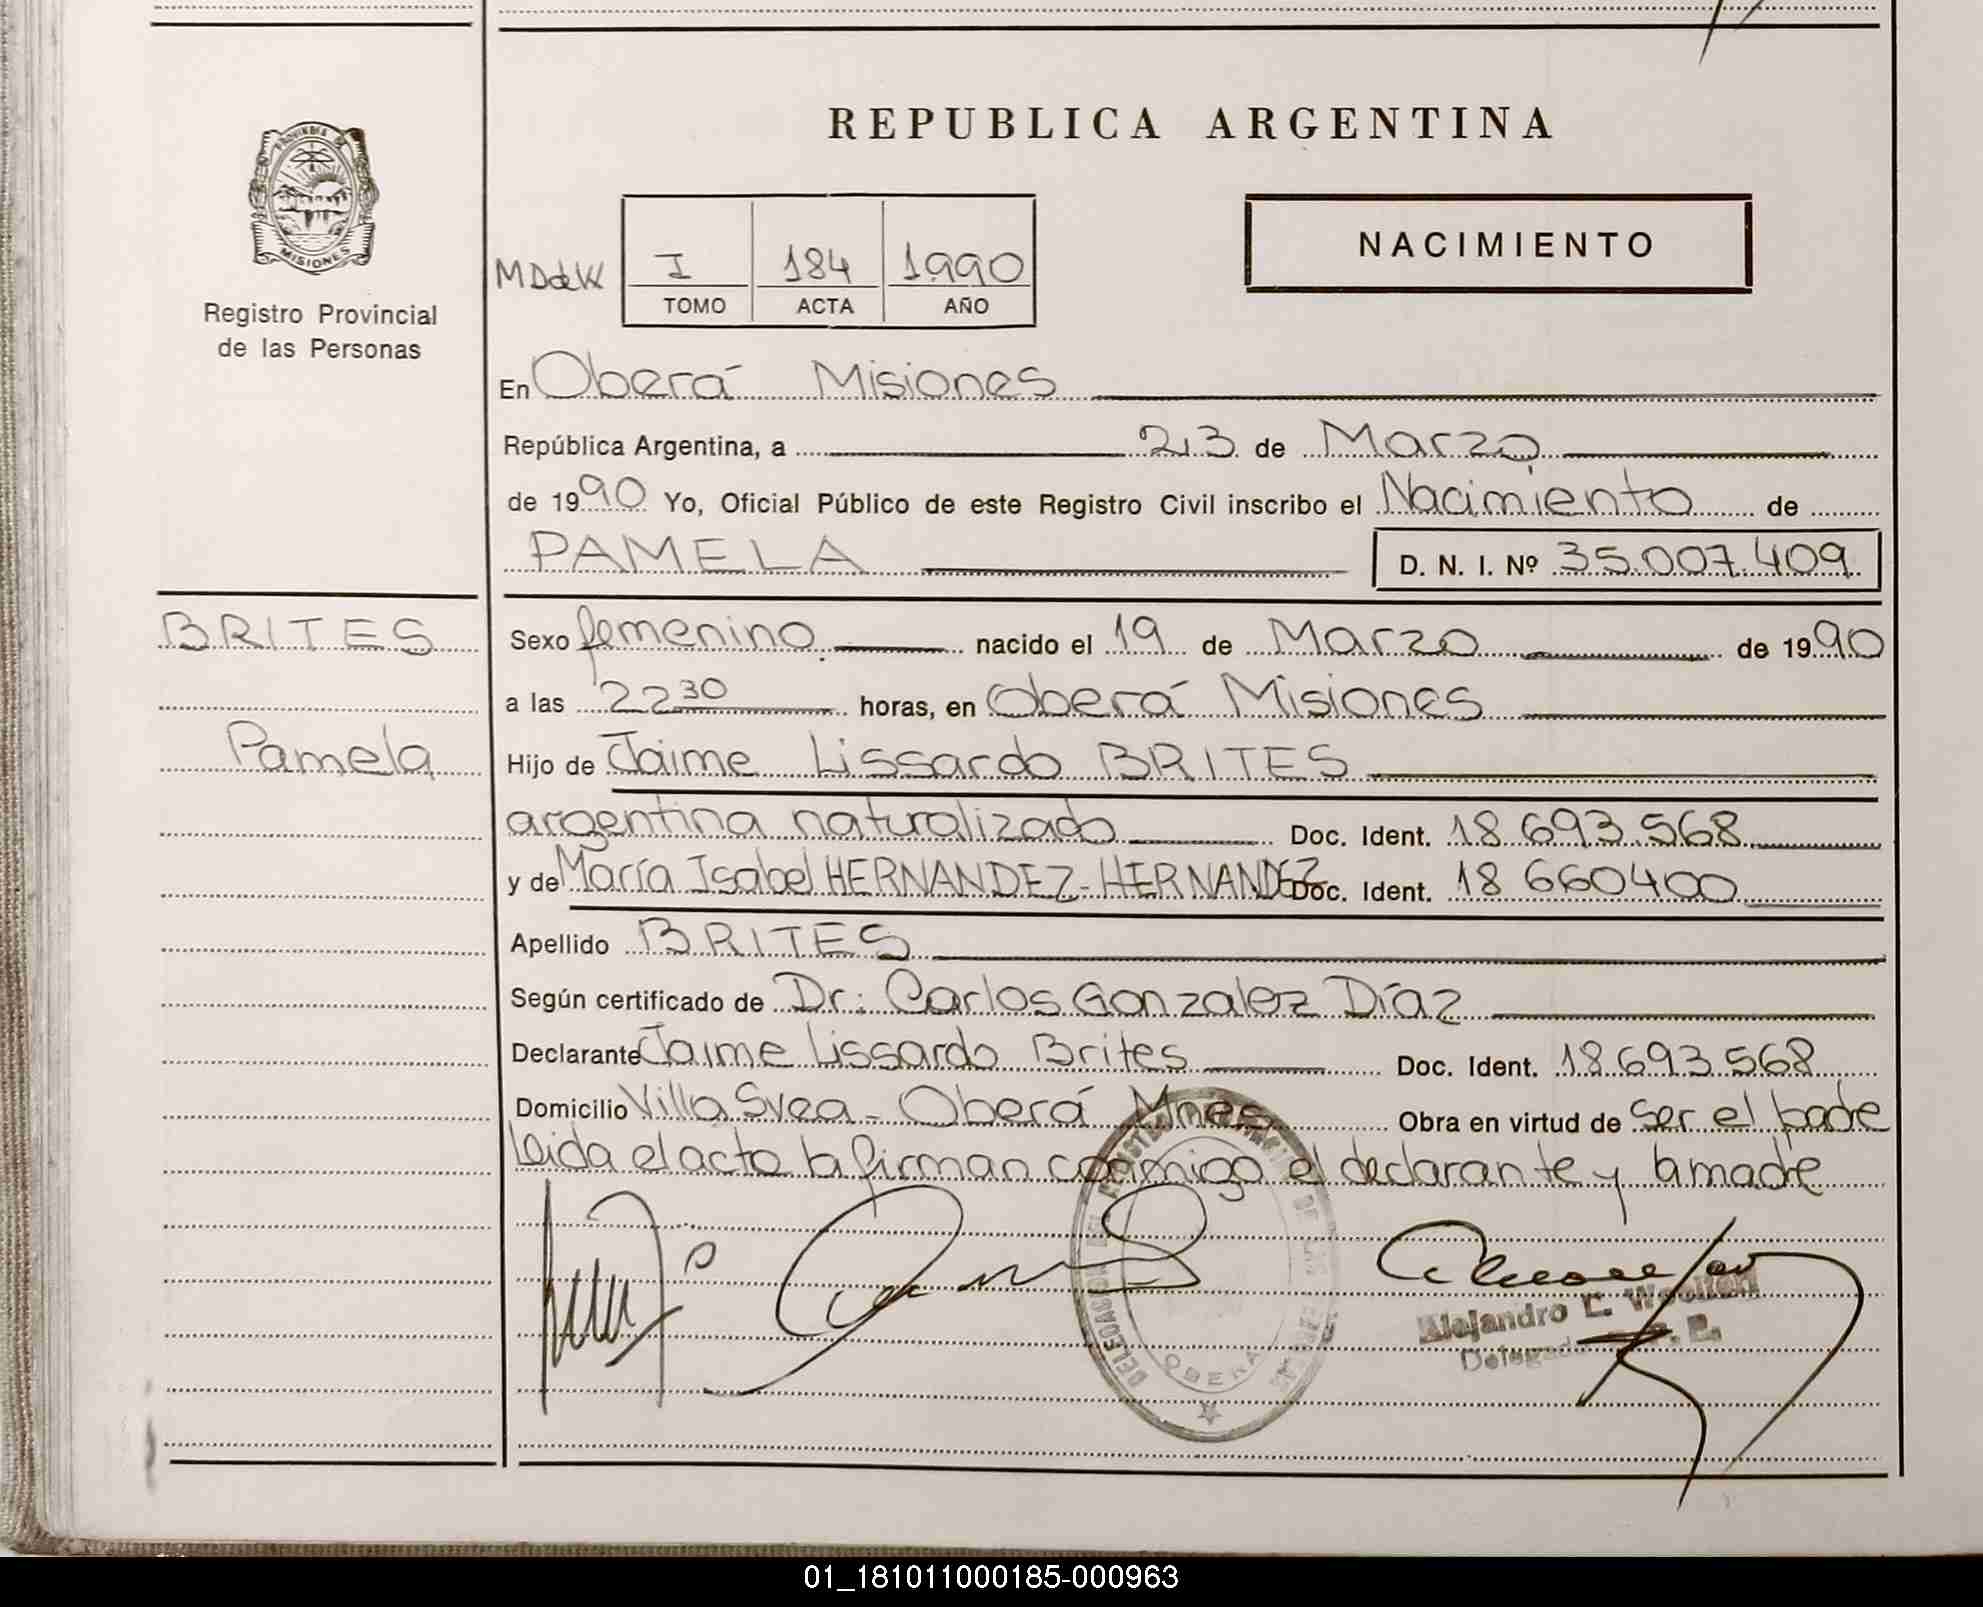 REPUBLICA ARGENTINA
PROVINCIA DE
MISIONES
Registro Provincial
de las Personas
NACIMIENTO
MDdeK I 184 1990
TOMO ACTA AÑO
En Oberá Misiones
República Argentina, a 23 de Marzo
de 1990 Yo, Oficial Público de este Registro Civil inscribo el Nacimiento de
PAMELA D. N. I. Nº 35.007.409
BRITES
Pamela
Sexo femenino nacido el 19 de Marzo de 1990
a las 22 30 horas, en Oberá Misiones
Hijo de Jaime Lissardo BRITES
argentina naturalizado Doc. Ident. 18.693.568
y de María Isabel HERNANDEZ-HERNANDEZ Doc. Ident. 18 660400
Apellido BRITES
Según certificado de Dr: Carlos Gonzalez Díaz
Declarante Jaime Lissardo Brites Doc. Ident. 18693568
Domicilio Villa Svea - Oberá Mnes Obra en virtud de ser el padre
Leida el acta la firman conmigo el declarante y la madre
DELEGACION DEL DE LAS
OBERA
Alejandro E.
Delegado
01_181011000185-000963